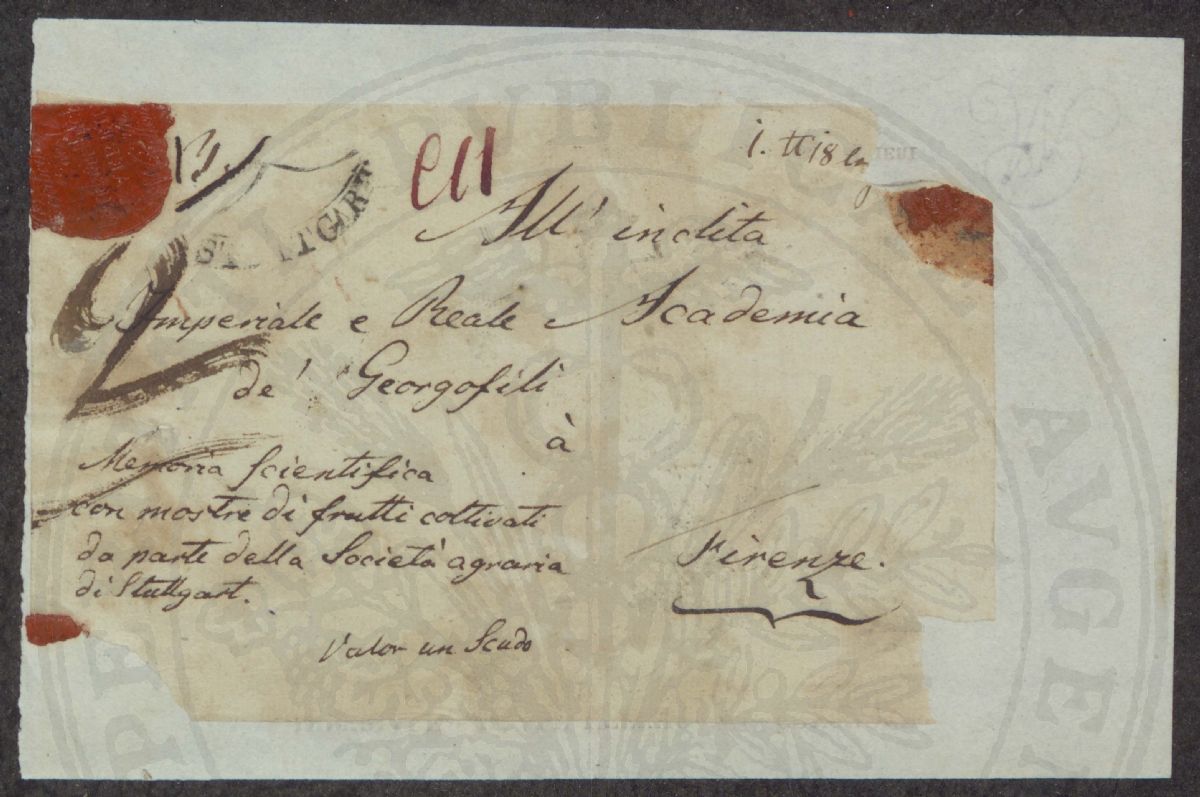 STUTTGART
All' inclita
Imperiale e Reale Academia
de' Georgofili
à
Firenze.
Memoria scientifica
con mostre di frutti coltivati
da parte della Società agraria
di Stuttgart.
Valor un Scudo